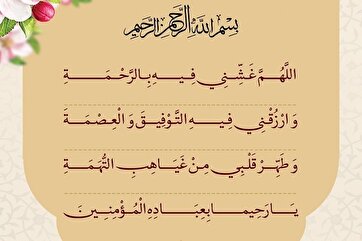 بِسْمِ اللَّهِ الرَّحْمَنِ الرَّحِيمِ
اللَّهُمَّ غَشِّنِي فِيهِ بِالرَّحْمَةِ
وَ ارْزُقْنِي فِيهِ التَّوْفِيقَ وَ الْعِصْمَةَ
وَ طَهِّرْ قَلْبِي مِنْ غَيَاهِبِ التُّهَمَةِ
يَا رَحِيما بِعِبَادِهِ الْمُؤْمِنِينَ